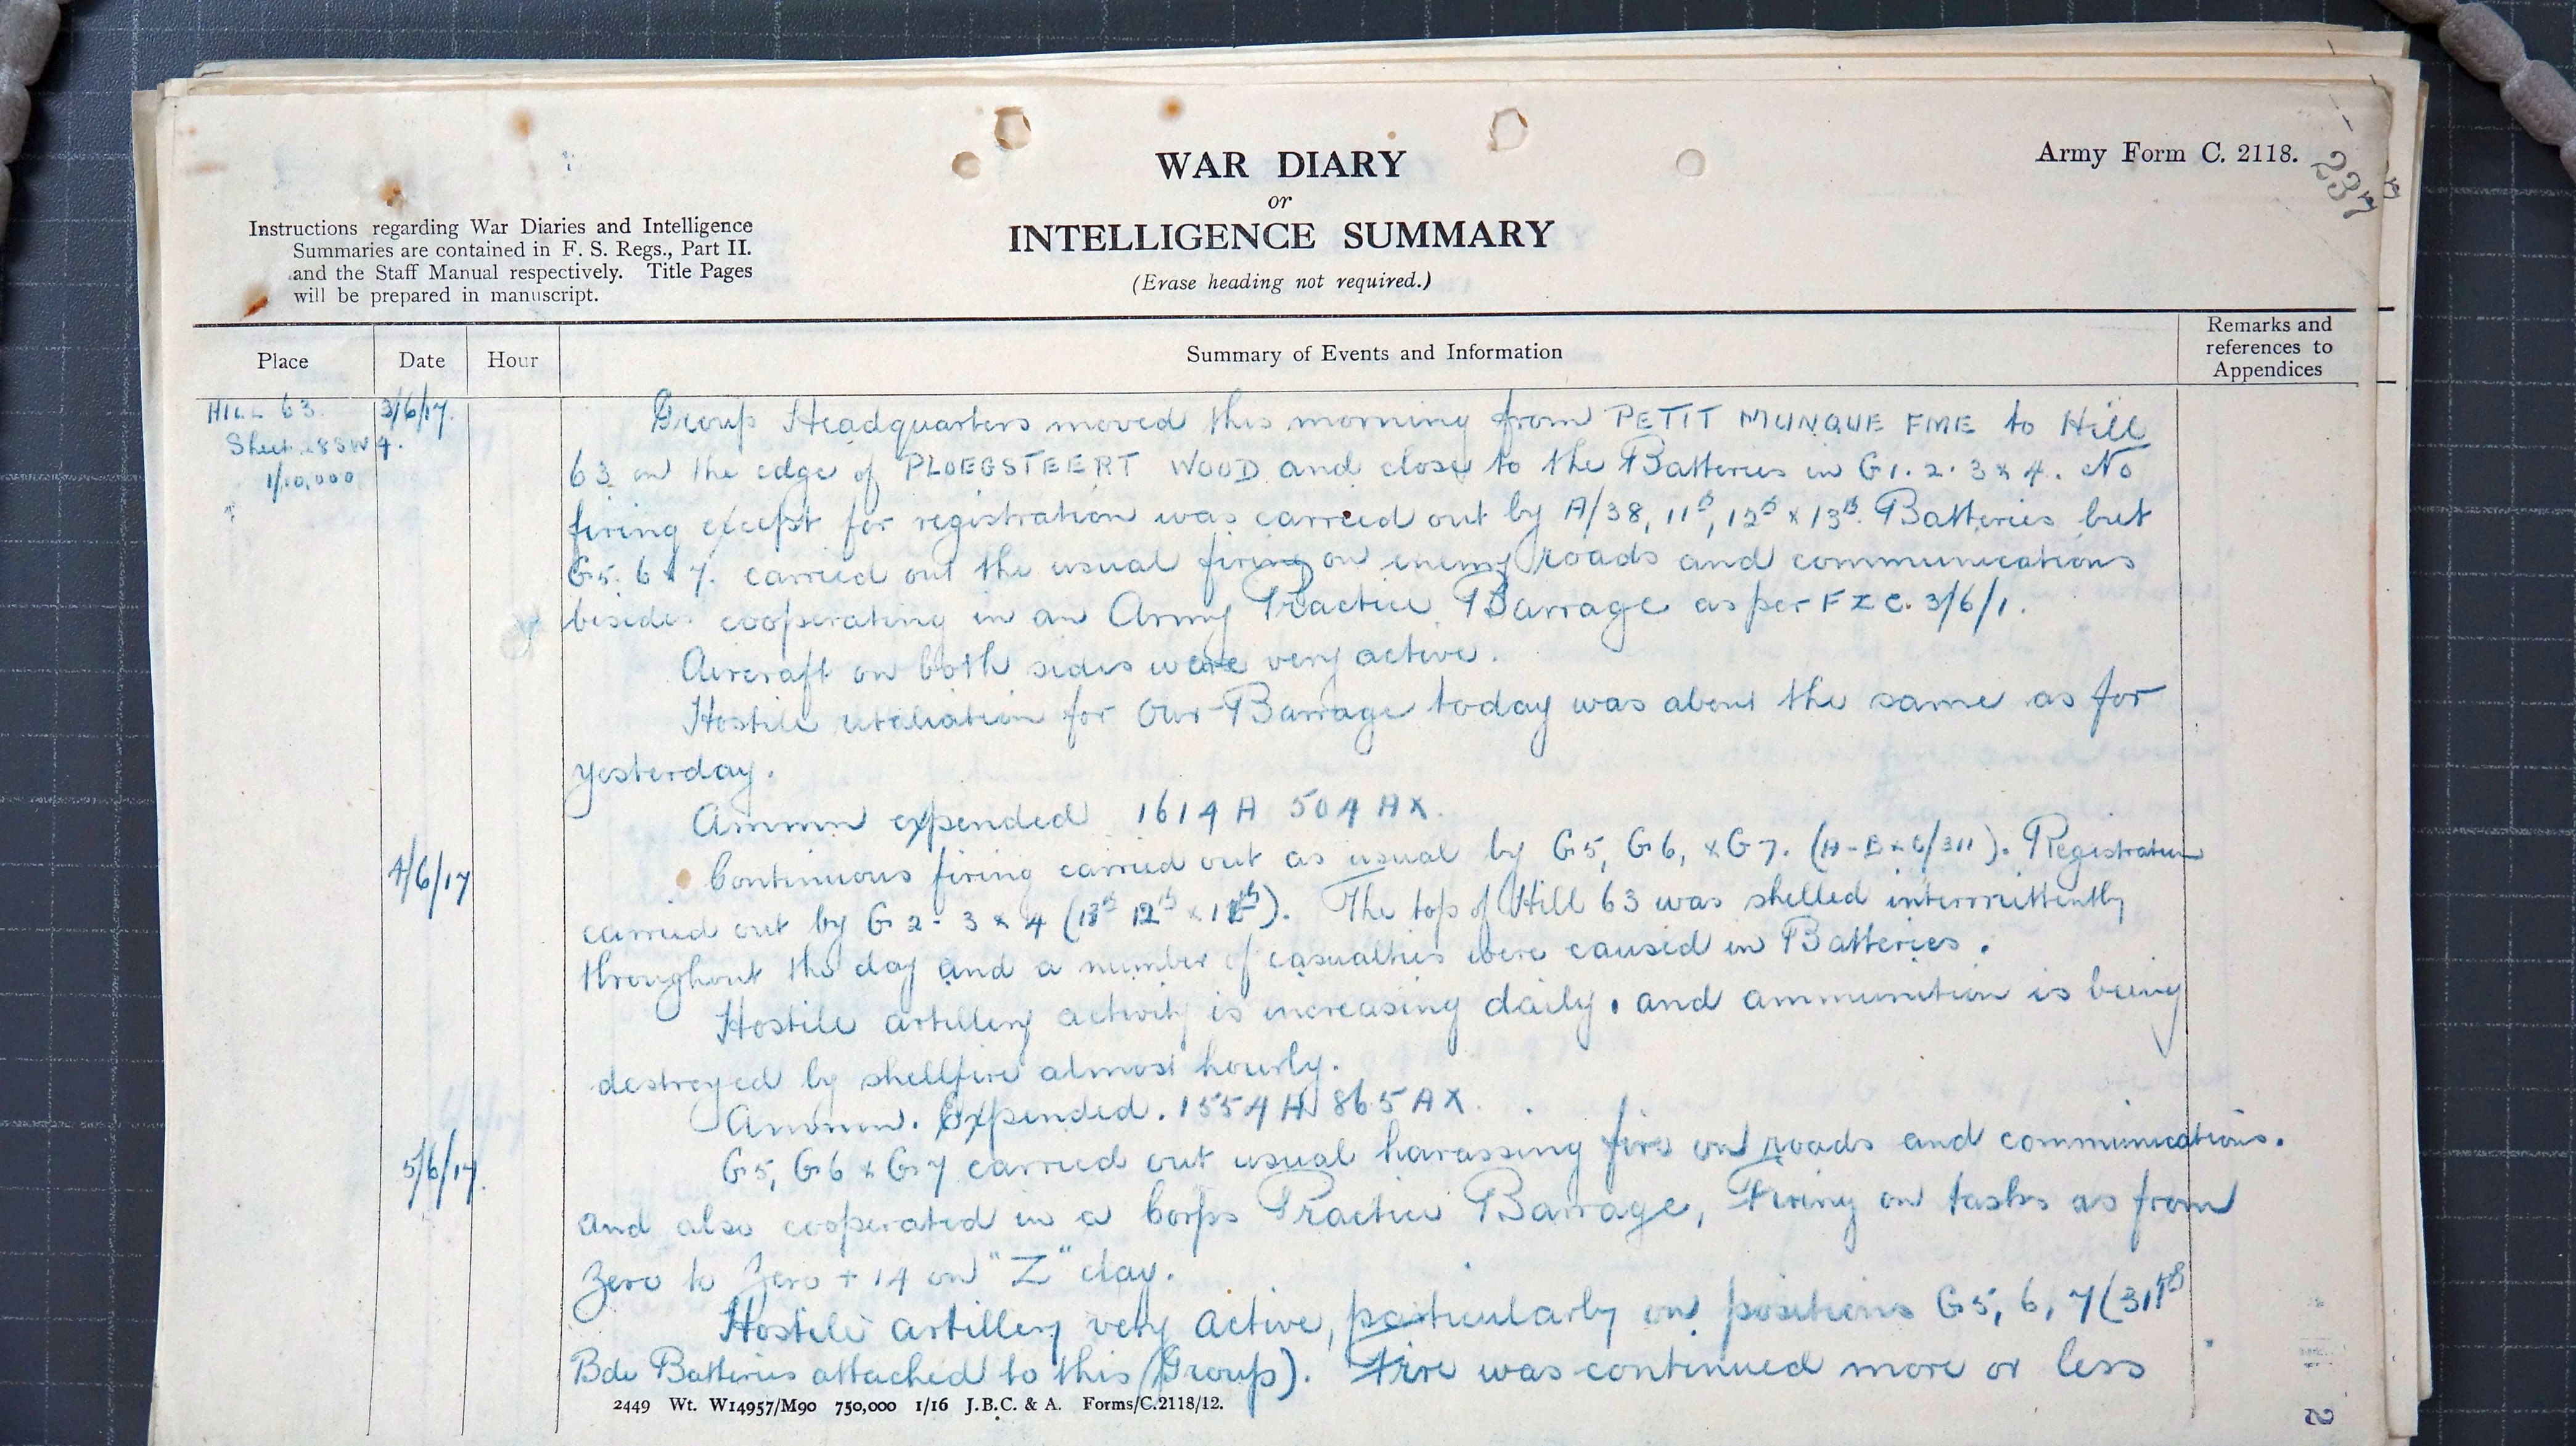 WAR DIARY
or
INTELLIGENCE SUMMARY
(Erase heading not required.)
Army Form C. 2118.
237
Instructions regarding War Diaries and Intelligence
Summaries are contained in F. S. Regs., Part II.
and the Staff Manual respectively. Title Pages
will be prepared in manuscript.
Place Date Hour Summary of Events and Information Remarks and references to Appendices
HILL 63.
Sheet 28 SW 4.
1/10,000
3/6/17.
Group Headquarters moved this morning from PETIT MUNQUE FME to Hill
63 on the edge of PLOEGSTEERT WOOD and close to the Batteries in G1. 2. 3 & 4. No
firing except for registration was carried out by A/38, 11th, 12th & 13th Batteries but
G5. 6 & 7. carried out the usual firing on enemy roads and communications
besides cooperating in an Army Practice Barrage as per 3/6/1.
Aircraft on both sides were very active.
Hostile retaliation for our Barrage today was about the same as for
yesterday.
Ammn expended 1614 A 504 AX.
4/6/17
Continuous firing carried out as usual by G5, G6, & G7. (A-B & C/311). Registration
carried out by G2- 3 & 4 (13th 12th & 11th). The top of Hill 63 was shelled intermittently
throughout the day and a number of casualties were caused in Batteries.
Hostile artillery activity is increasing daily. and ammunition is being
destroyed by shellfire almost hourly.
Ammn. Expended. 1554 A 865 AX.
5/6/17.
G5, G6 & G7 carried out usual harassing fire on roads and communications.
and also cooperated in a Corps Practice Barrage, Firing on tasks as from
Zero to Zero + 14 on "Z" day.
Hostile artillery very active, particularly on positions G5, 6, 7 (311th
Bde Batteries attached to this Group). Fire was continued more or less
2449 Wt. W14957/M90 750,000 1/16 J.B.C. & A. Forms/C.2118/12.